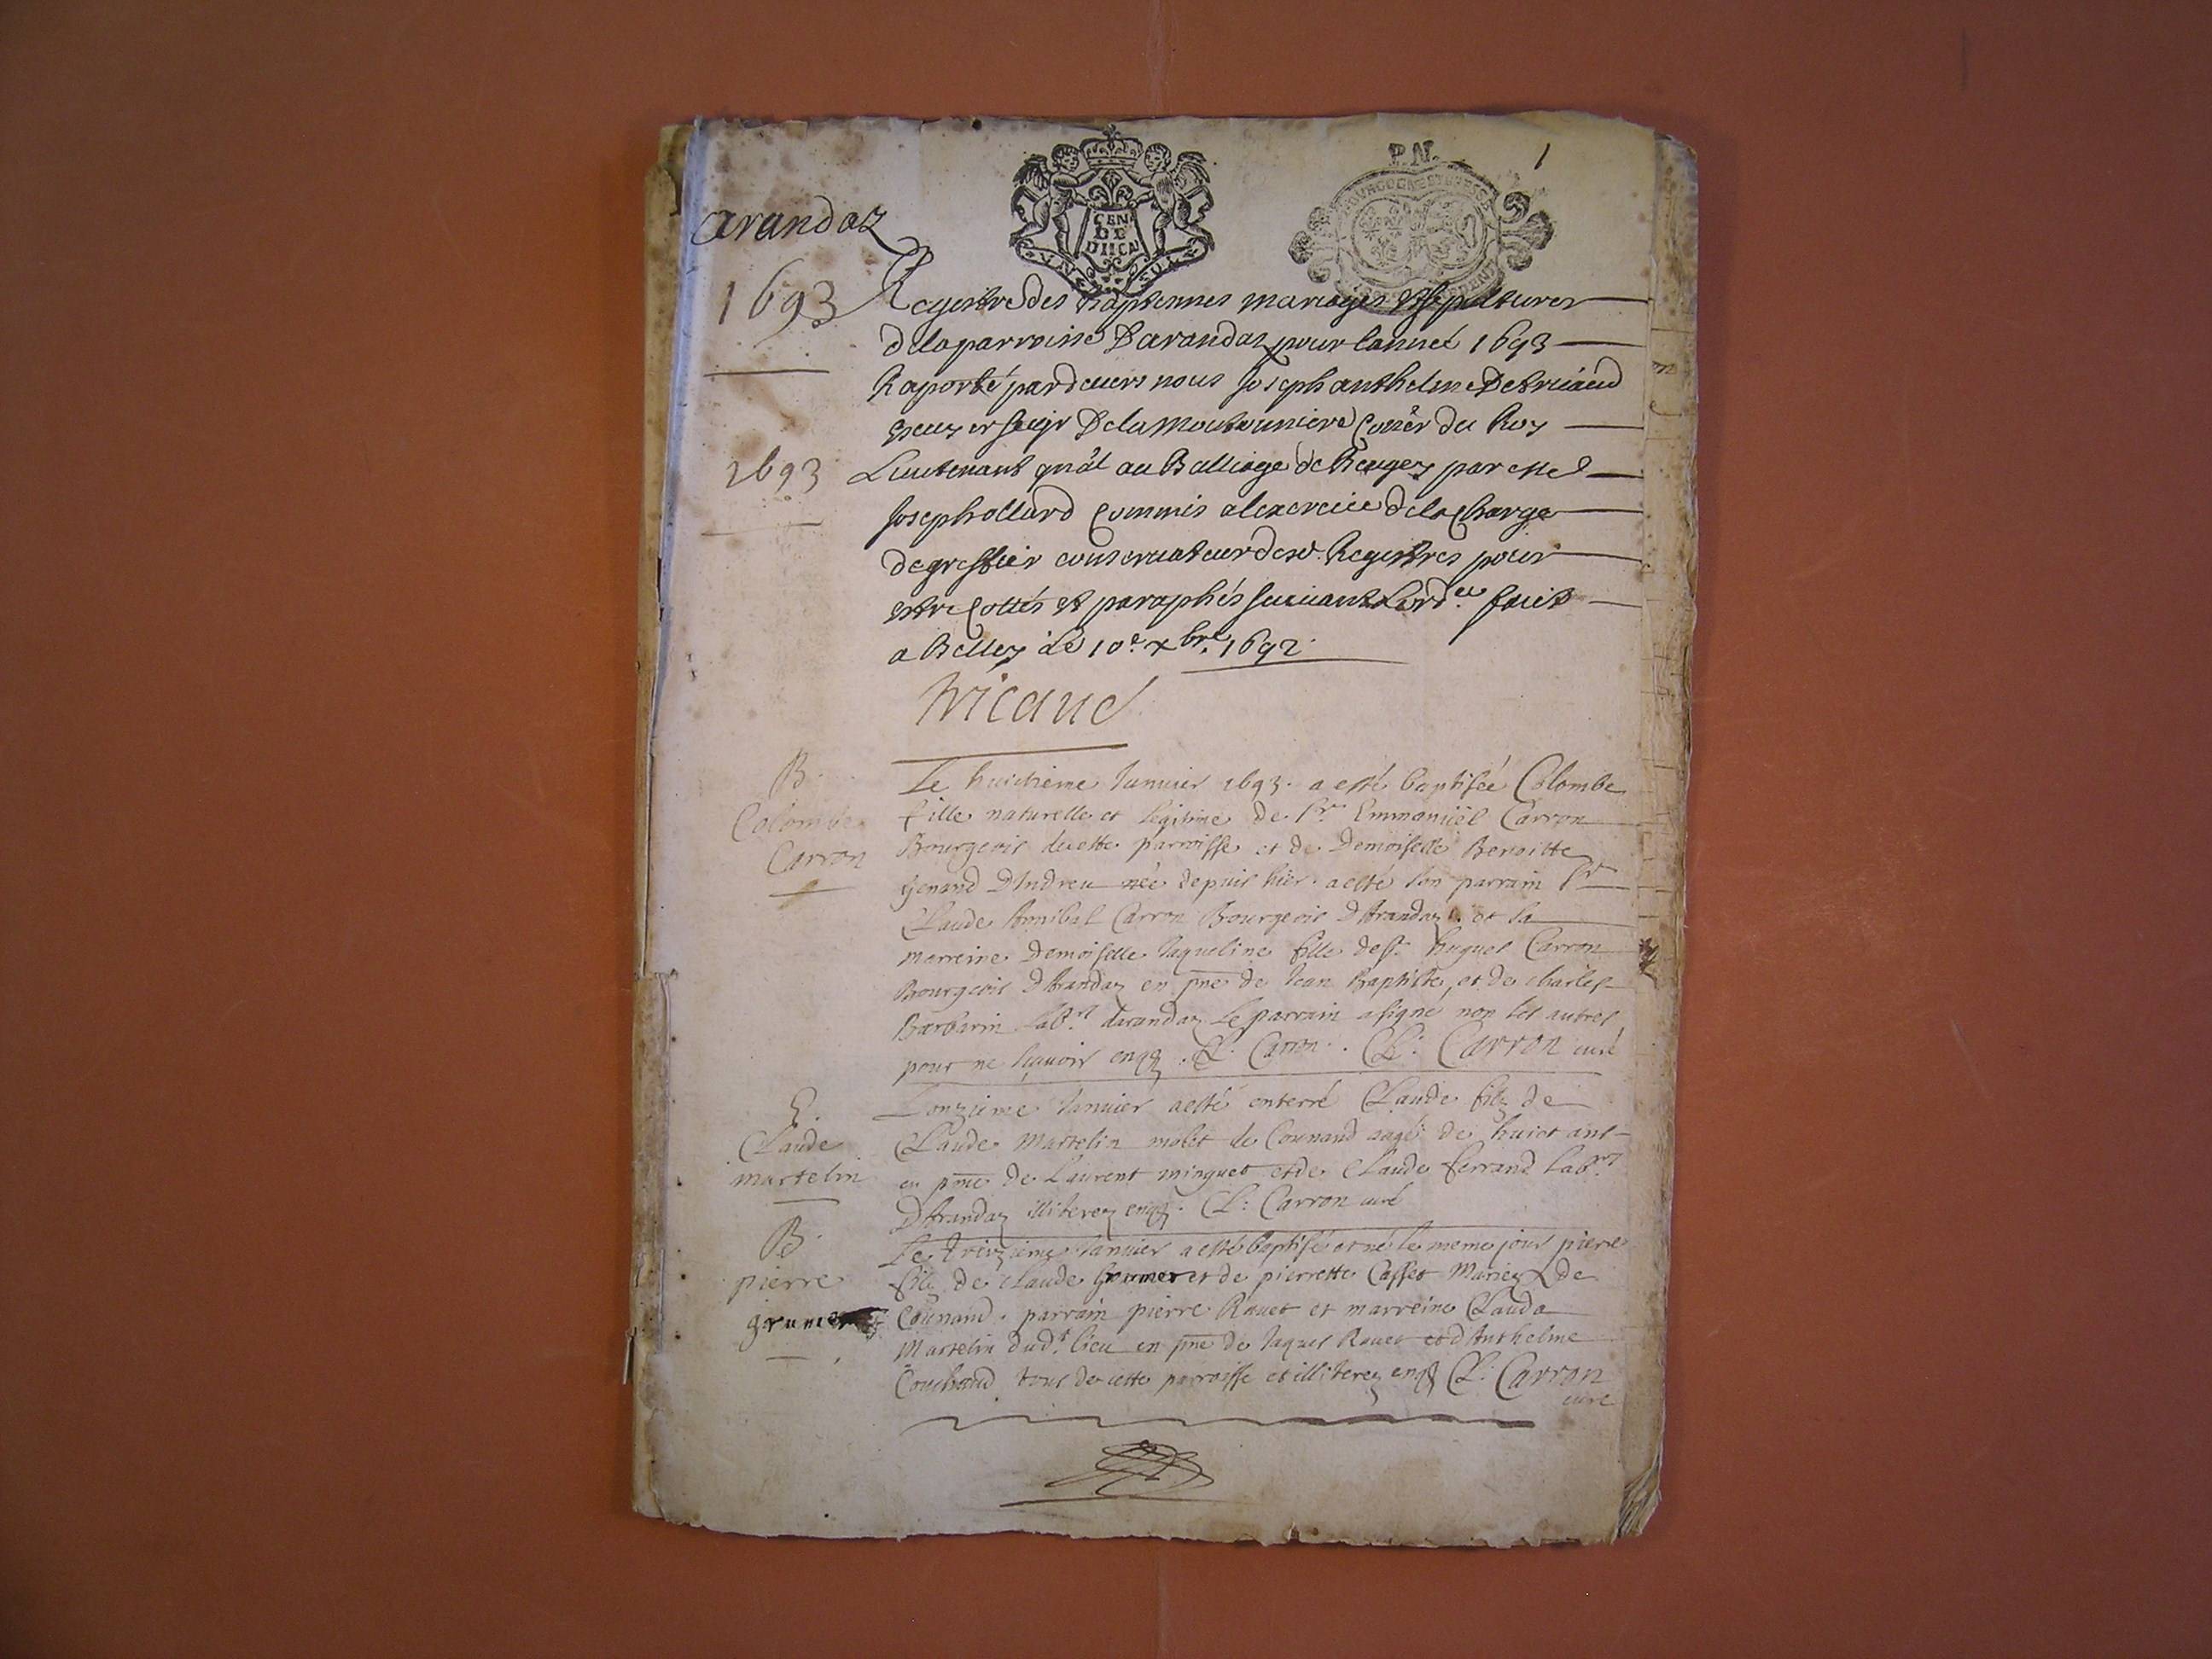 P.N.
1
arandaz
CEN
DE
DIICA
1693
Registre des Baptesmes mariages et sepultures
de la parroisse D'arandaz pour l'année 1693
Raporté pardevers nous Joseph anthelme De tricaud
escuyer seigr De la Moutonniere Coner du Roy
1693
Lieutenant gnâl au Balliage de Beugey par Me
Joseph ollard Commis a lexercice de la Charge
de greffier conservateur desd. Registres pour
estre Cottés et paraphés suivant Lord.ce faict
a Belley Le 10e xbre 1692.
tricaud
B.
Colombe
Carron
Le huictieme Janvier 1693. a esté baptisée Colombe
fille naturelle et legitime de Sr. Emmanüel Carron
Bourgeois de cette parroisse et de Demoiselle Benoitte
Genand D'Indreu née depuis hier. a esté son parrain Sr
Claude Annibal Carron Bourgeois D'Arandaz. et sa
marreine Demoiselle Jaqueline fille de Sr. Hugues Carron
Bourgeois D'Arandaz en pnce de Jean Baptiste, et de charles
Barbarin labrs darandaz. Le parrain a signé non les autres
pour ne sçavoir enqs. C. Carron. Cl: Carron curé
E.
Claude
martelin
L'onzieme Janvier a esté enterré Claude filz de
Claude Martelin molet de Counand aagé de huict ans
en pnce de Laurent minguet et de Claude ferrand labrs
D'Arandaz illiterez enqs. Cl: Carron curé
B.
pierre
grumet
Le treizieme Janvier a esté baptisé et né le meme jour pierre
filz de claude Grumet et de pierrette Casset Mariez de
Counand. parrain pierre Rouet et marreine Clauda
Martelin dudt. lieu en pnce de Jaques Rouet et d'Anthelme
Couchand tous de cette parroisse et illiterez enqs Cl: Carron
curé